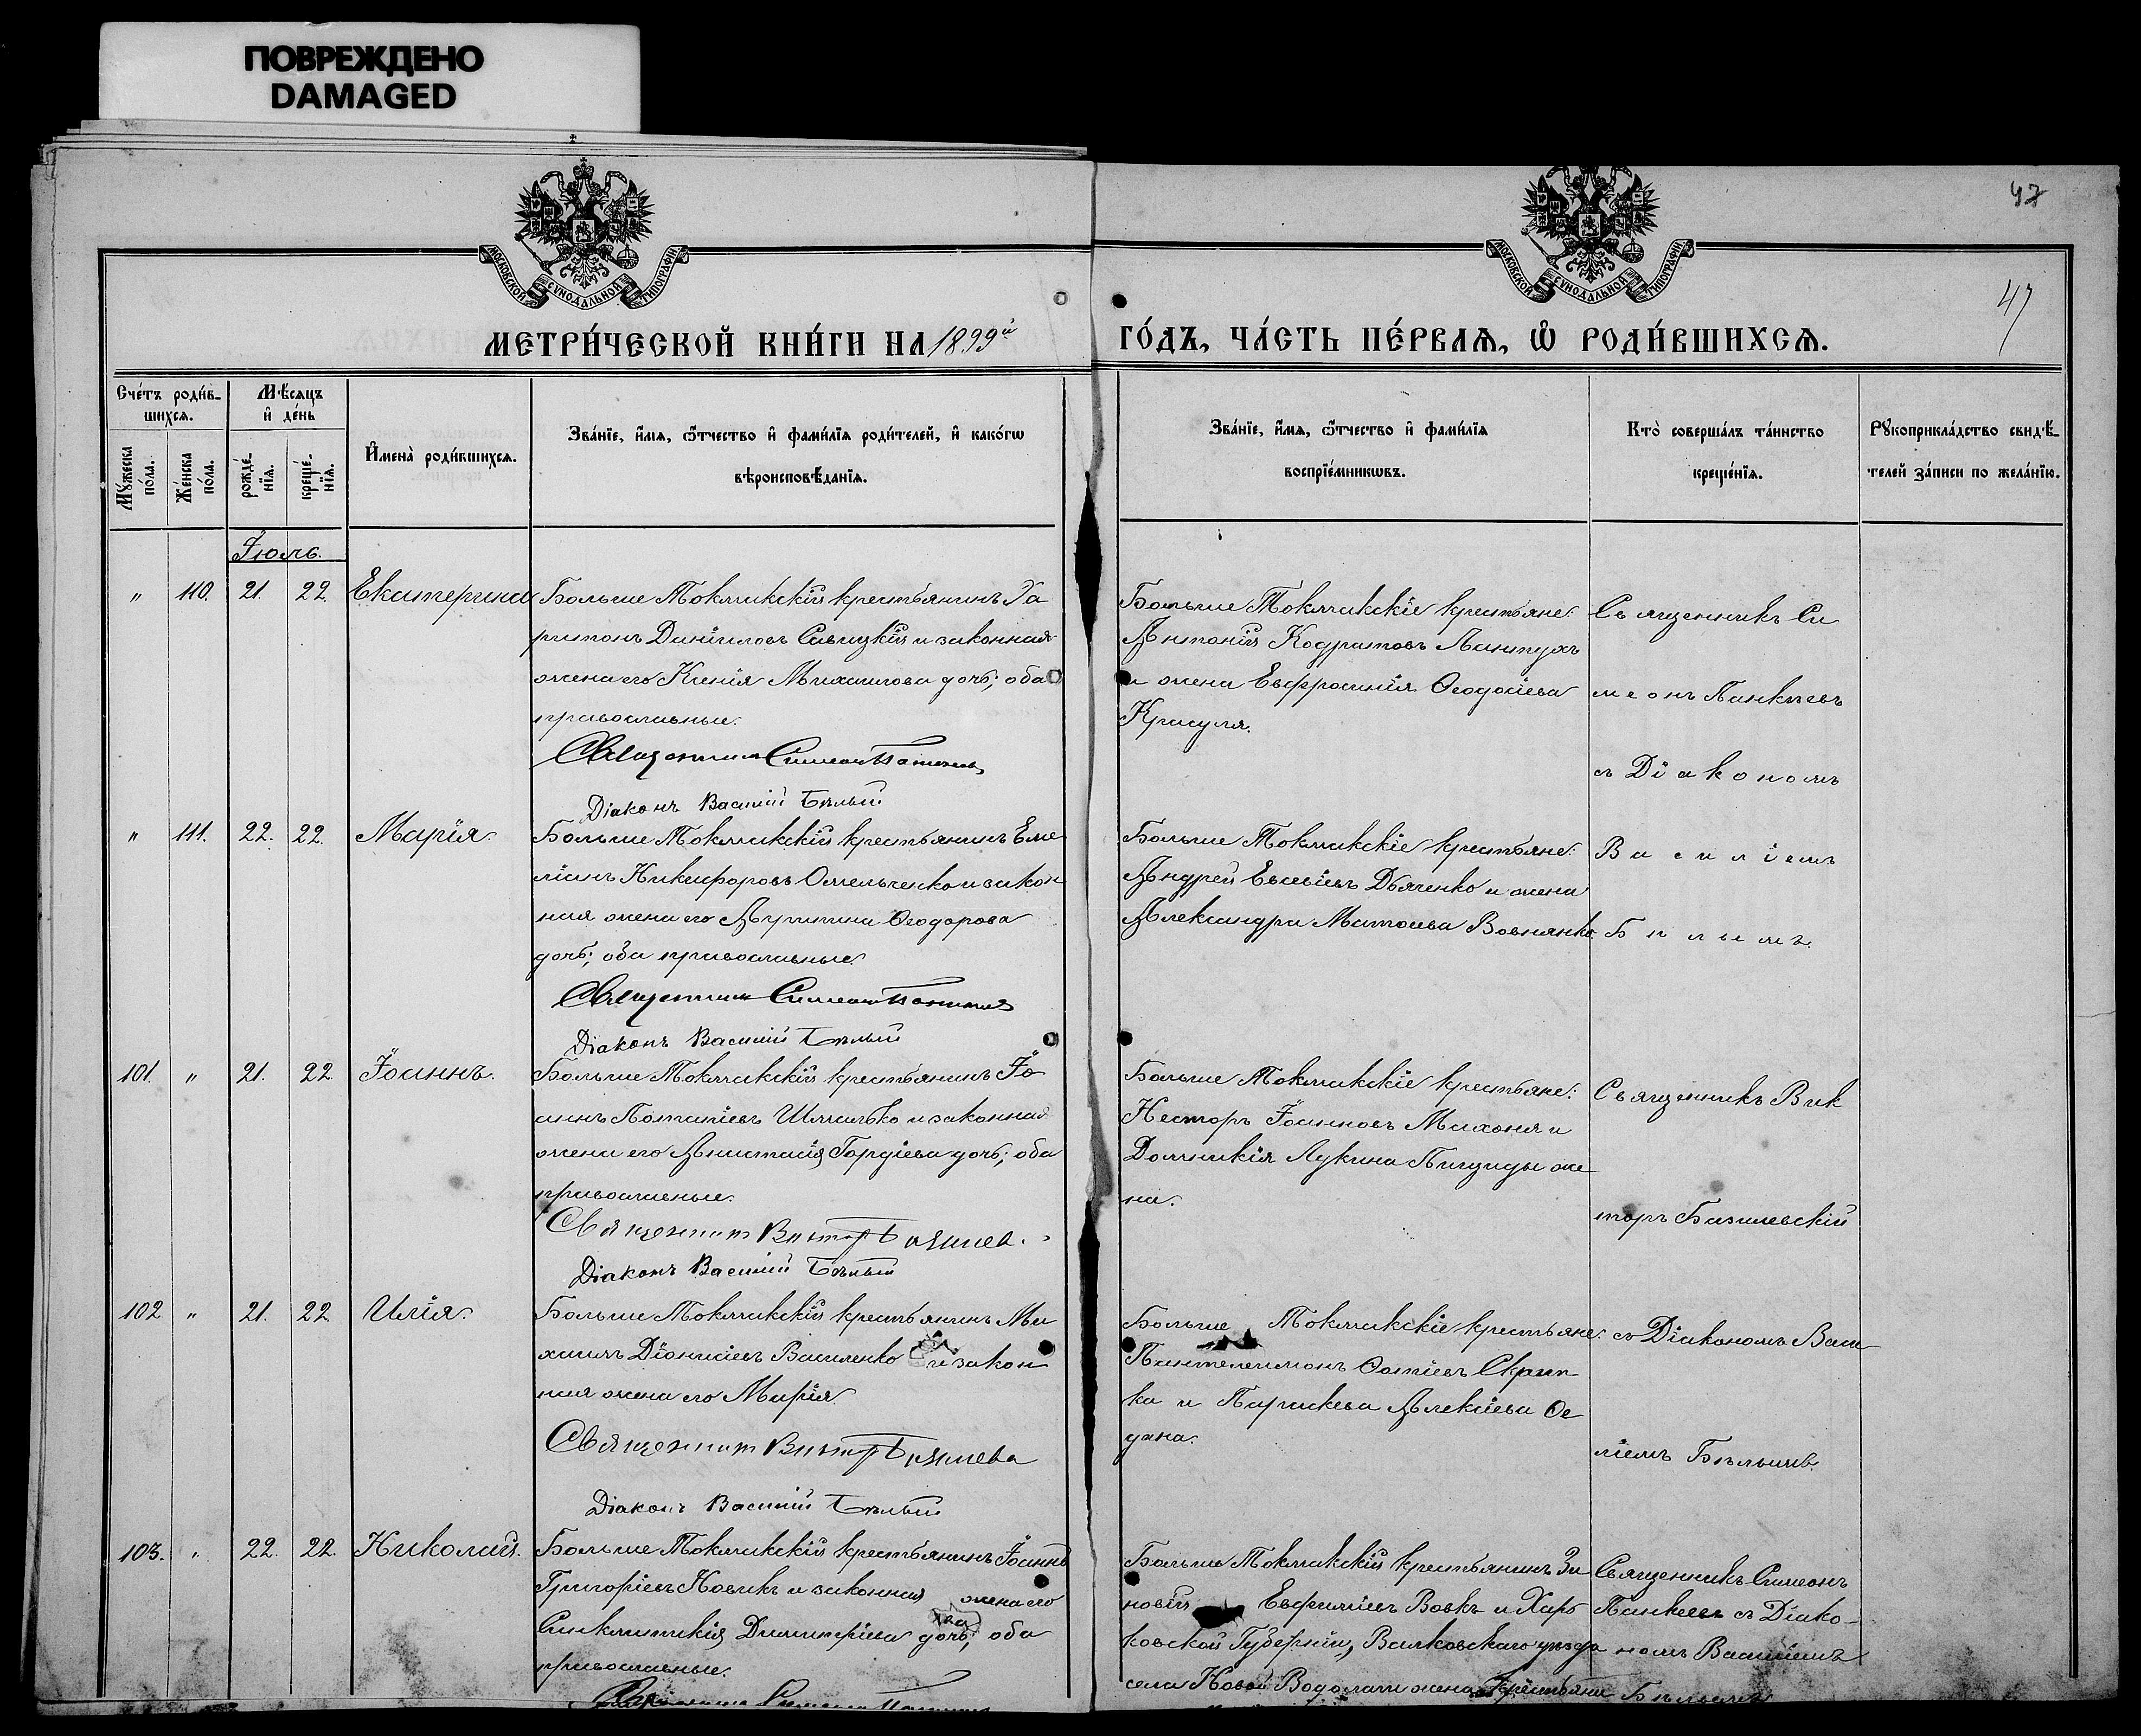 ПОВРЕЖДЕНО
DAMAGED
МОСКОВСКОЙ СУНОДАЛЬНОЙ ТИПОГРАФІИ
МОСКОВСКОЙ СУНОДАЛЬНОЙ ТИПОГРАФІИ
47
47
МЕТРИ́ЧЕСКОЙ КНИ́ГИ НА 1899й
ГО́ДЪ, ЧА́СТЬ ПЕ́РВАѦ, Ѡ҆ РОДИ́ВШИХСѦ.
Сче́тъ роди́в-
шихсѧ.
Мꙋ́жеска по́ла.
Же́нска по́ла.
Мѣ́сѧцъ
и҆ де́нь
рожде́-
нїѧ.
креще́-
нїѧ.
И҆мена̀ роди́вшихсѧ.
Зва́нїе, и҆́мѧ, ѻ҆́тчество и҆ фами́лїѧ роди́телей, и҆ како́гѡ
вѣроисповѣ́данїѧ.
Зва́нїе, и҆́мѧ, ѻ҆́тчество и҆ фами́лїѧ
воспрїе́мникѡвъ.
Кто̀ соверша́лъ та́инство
креще́нїѧ.
Рꙋкоприкла́дство свидѣ́-
телей за́писи по жела́нїю.
Іюль.
" 110. 21. 22. Екатерина
Больше Токмакскій крестьянинъ Ха
ритонъ Даніиловъ Савицкій и законная
жена его Ксенія Михаилова дочь; оба
православные.
Священникъ Симеонъ Панкеевъ
Діаконъ Василій Бѣлый
Больше Токмакскіе крестьяне:
Антоній Кодратовъ Лантухъ
и жена Евфросинія Ѳеодосіева
Красуля.
Священникъ Си
меонъ Панкѣевъ
съ Діакономъ
Василіемъ
Бѣлымъ.
" 111. 22. 22. Марія.
Больше Токмакскій крестьянинъ Еме
ліанъ Никифоровъ Омельченко и закон
ная жена его Агрипина Ѳеодорова
дочь; оба православные.
Священникъ Симеонъ Панкеевъ
Діаконъ Василій Бѣлый
Больше Токмакскіе крестьяне:
Андрей Евсевіевъ Дьяченко и жена
Александра Матѳіева Вовнянко.
101. " 21. 22. Іоаннъ.
Больше Токмакскій крестьянинъ Іо
аннъ Потапіевъ Шматько и законная
жена его Анастасія Гордіева дочь; оба
православные.
Священникъ Викторъ Базилев.
Діаконъ Василій Бѣлый
Больше Токмакскіе крестьяне:
Несторъ Іоанновъ Махоня и
Домникія Лукина Пигдиды же
на.
Священникъ Вик
торъ Базилевскій
съ Діакономъ Васи
ліемъ Бѣлымъ.
102 " 21. 22 Илія.
Больше Токмакскій крестьянинъ Ми
хаилъ Діонисіевъ Василенко и закон
ная жена его Марія.
Священникъ Викторъ Базилева
Діаконъ Василій Бѣлый
Больше Токмакскіе крестьяне:
Пантелеимонъ Ѳотіевъ Скрип
ка и Параскева Алексіева Ѳе
дана.
103. " 22. 22. Николай.
Больше Токмакскій крестьянинъ Іоаннъ
Григоріевъ Новикъ и законная жена его
Синклитикія Димитріева дочь; оба
православные.
Больше Токмакскій крестьянинъ Зи
новій Евфиміевъ Вовкъ и Харь
ковской Губерніи, Валковскаго уѣзда
села Новой Водолаги жена крестьяни
Священникъ Симеонъ
Панкеевъ съ Діако-
номъ Василіемъ
Бѣлымъ